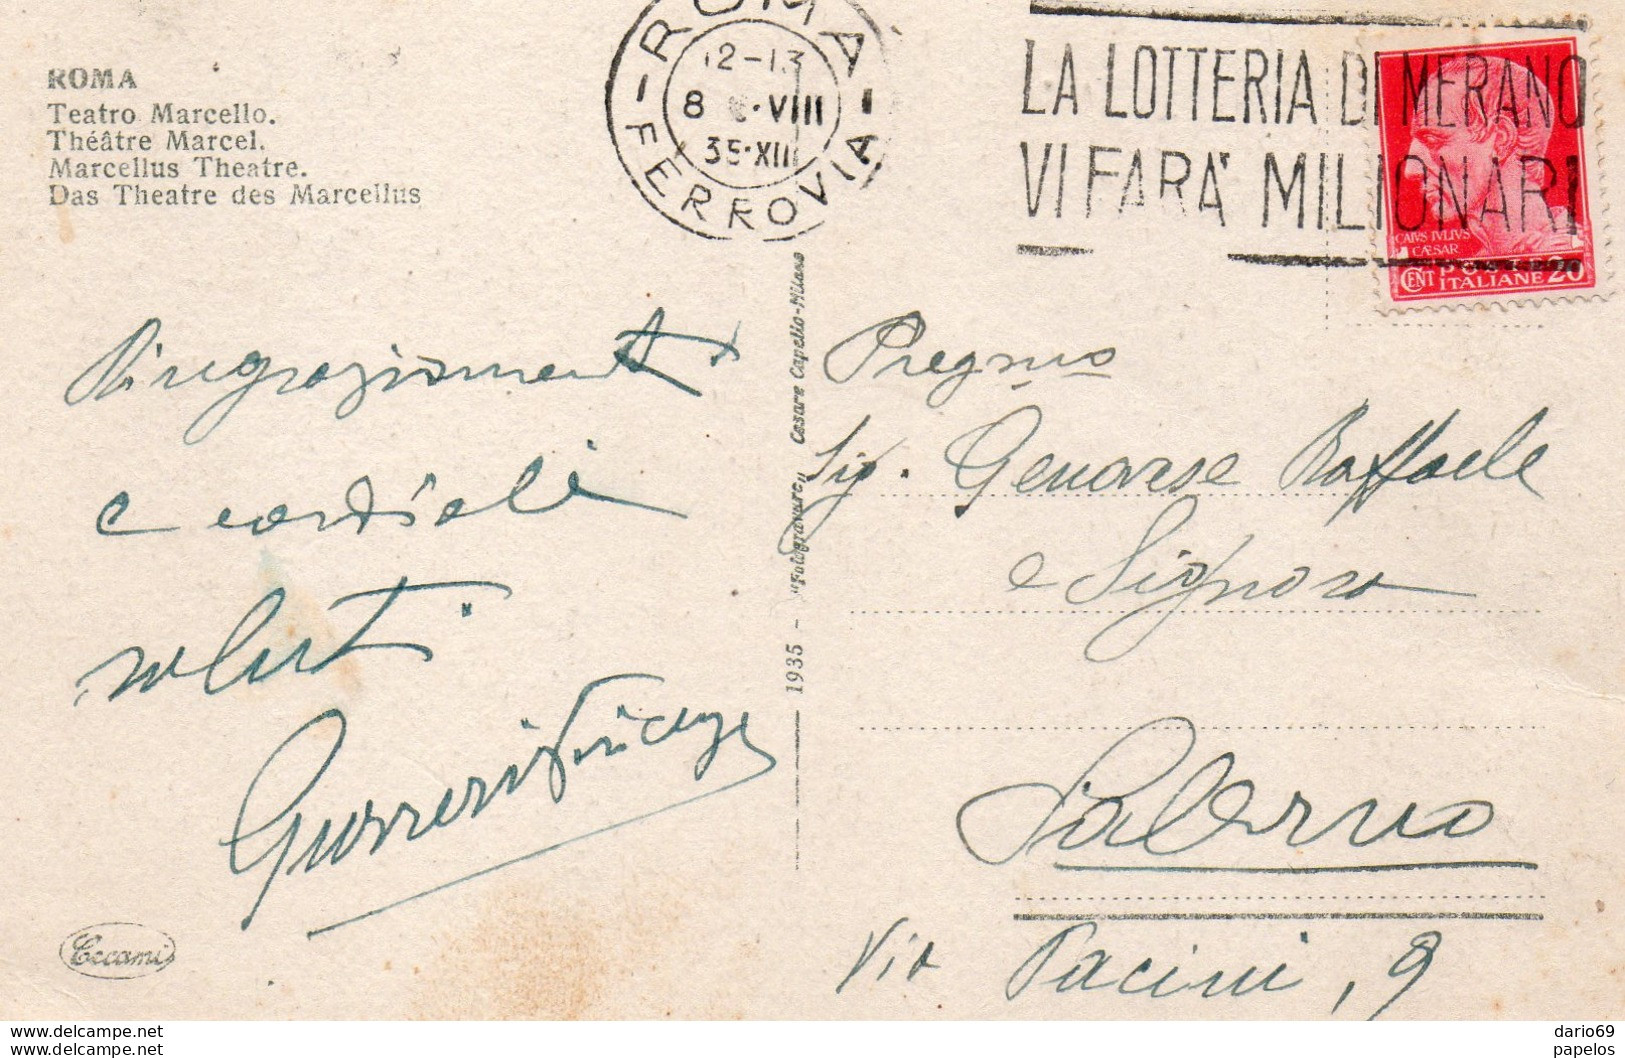 ROMA
Teatro Marcello.
Théâtre Marcel.
Marcellus Theatre.
Das Theatre des Marcellus
ROMA
FERROVIA
12-13
8 VIII
35·XIII
LA LOTTERIA DI MERANO
VI FARA' MILIONARI
CAIVS IVLIVS
CÆSAR
CENT POSTE 20
ITALIANE
Ringraziamenti
e cordiali
saluti
1935 - "Fotogravure" Cesare Capello-Milano
Pregmo
Sig. Genovese Raffaele
e Signora
Salerno
Via Pacini, 9
Cecami
www.delcampe.net
www.delcampe.net
dario69
papelos